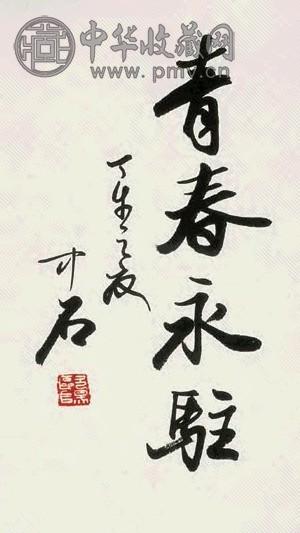 中华收藏网
www.pmv.cn
青春永駐
丁未之夏
才石